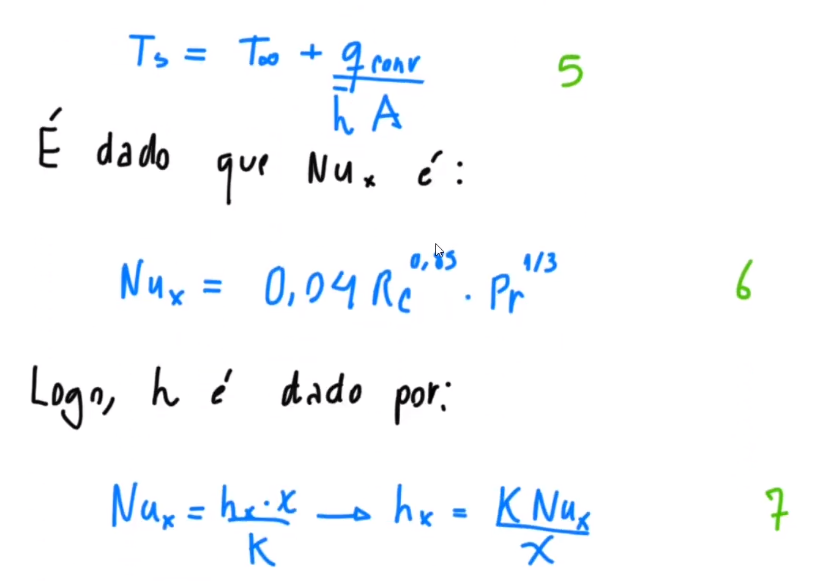 Ts = T∞ + q conv / h̄ A 5
É dado que Nux é:
Nux = 0,04 Re^0,85 · Pr^1/3 6
Logo, h é dado por:
Nux = hx·x / K → hx = K Nux / x 7